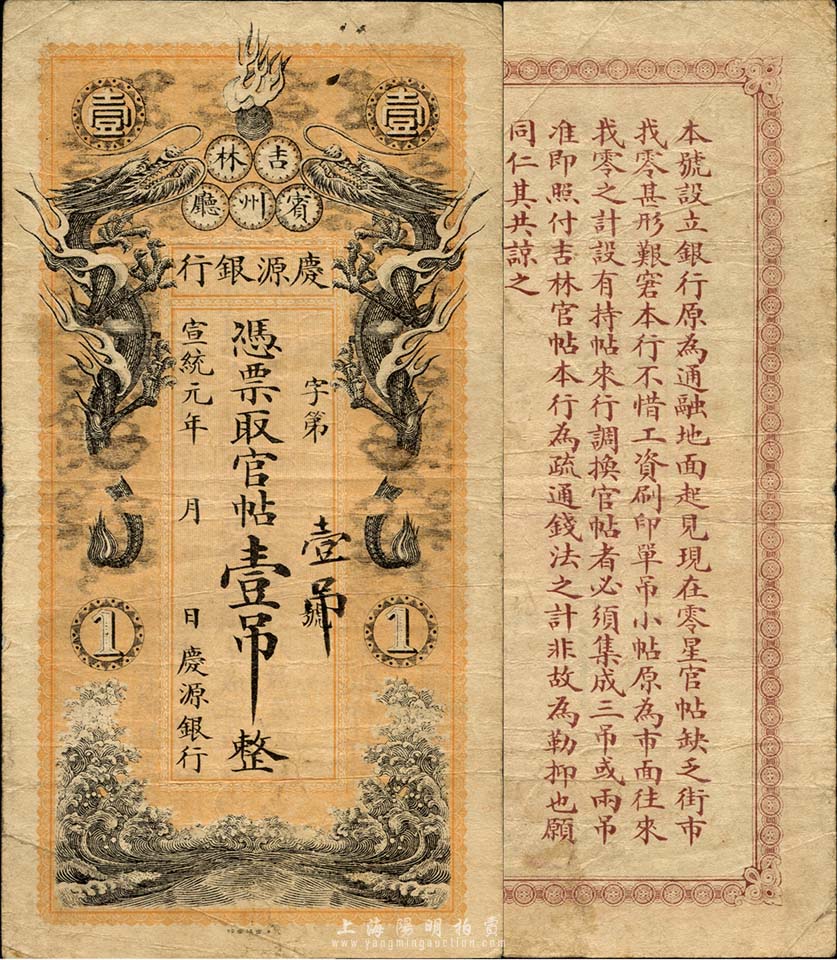 壹
壹
吉林
賓州廳
慶源銀行
字第
壹吊
號
憑票取官帖壹吊整
宣統元年 月 日慶源銀行
1
1
本號設立銀行原為通融地面起見現在零星官帖缺乏街市
找零甚形艱窘本行不惜工資刷印單吊小帖原為市面往來
找零之計設有持帖來行調換官帖者必須集成三吊或兩吊
准即照付吉林官帖本行為疏通錢法之計非故為勒抑也願
同仁其共諒之
上海陽明拍賣
www.yangmingauction.com